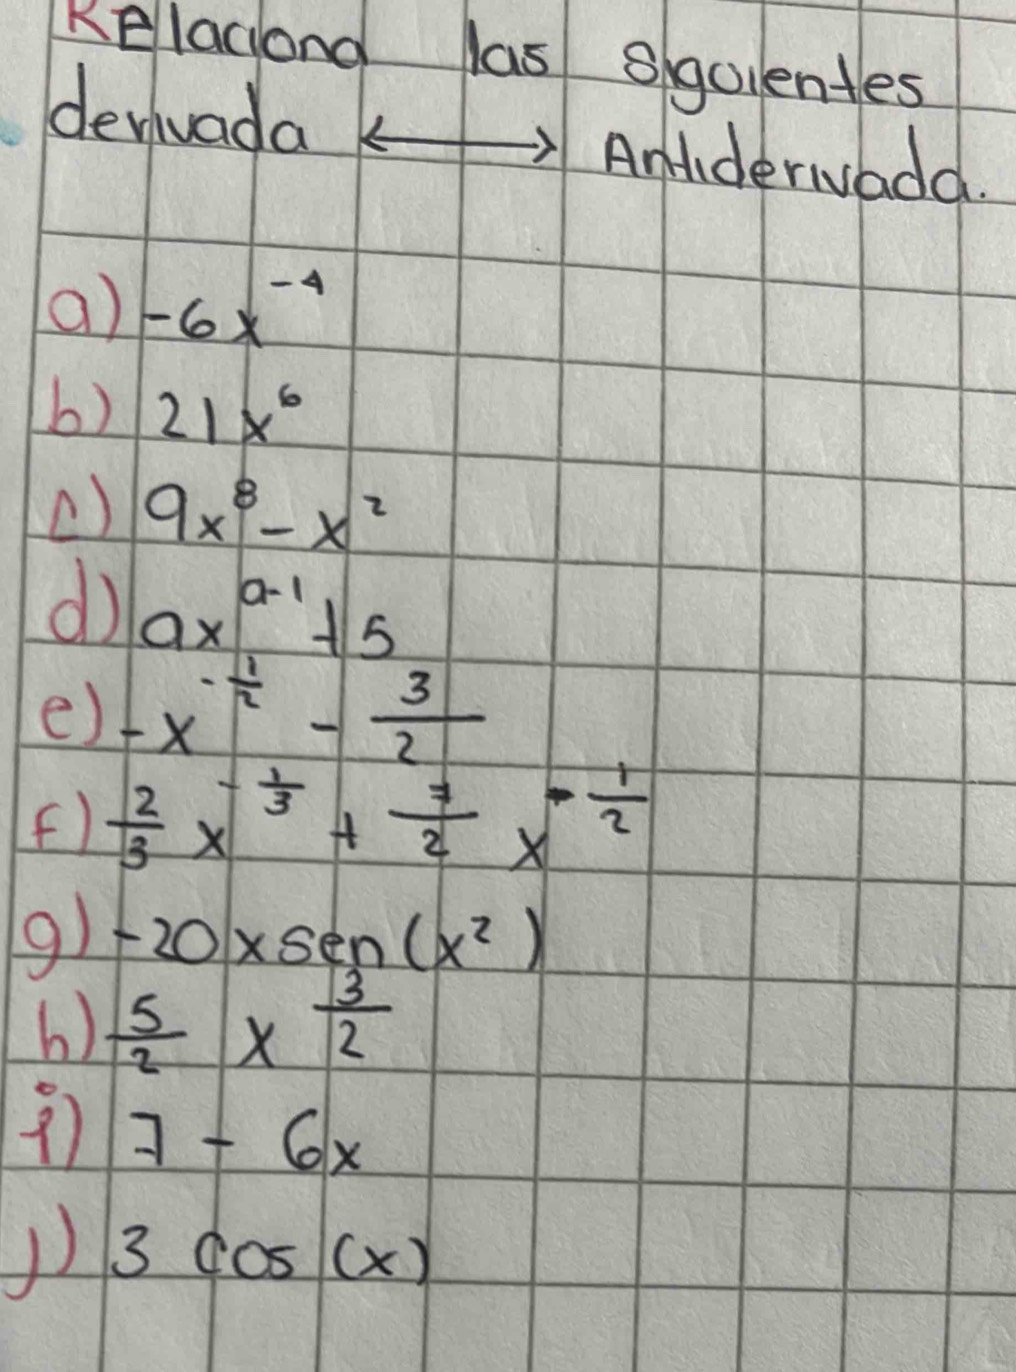 Relaciona las siguientes
derivada ⟷ Antiderivada.
a) -6x^-4
b) 21x^6
c) 9x^8 - x^2
d) ax^a-1 + 5
e) -x^-1/2 - 3/2
f) 2/3 x^-1/3 + 7/2 x^-1/2
g) -20xsen(x^2)
h) 5/2 x^3/2
i) 7 - 6x
j) 3 cos(x)